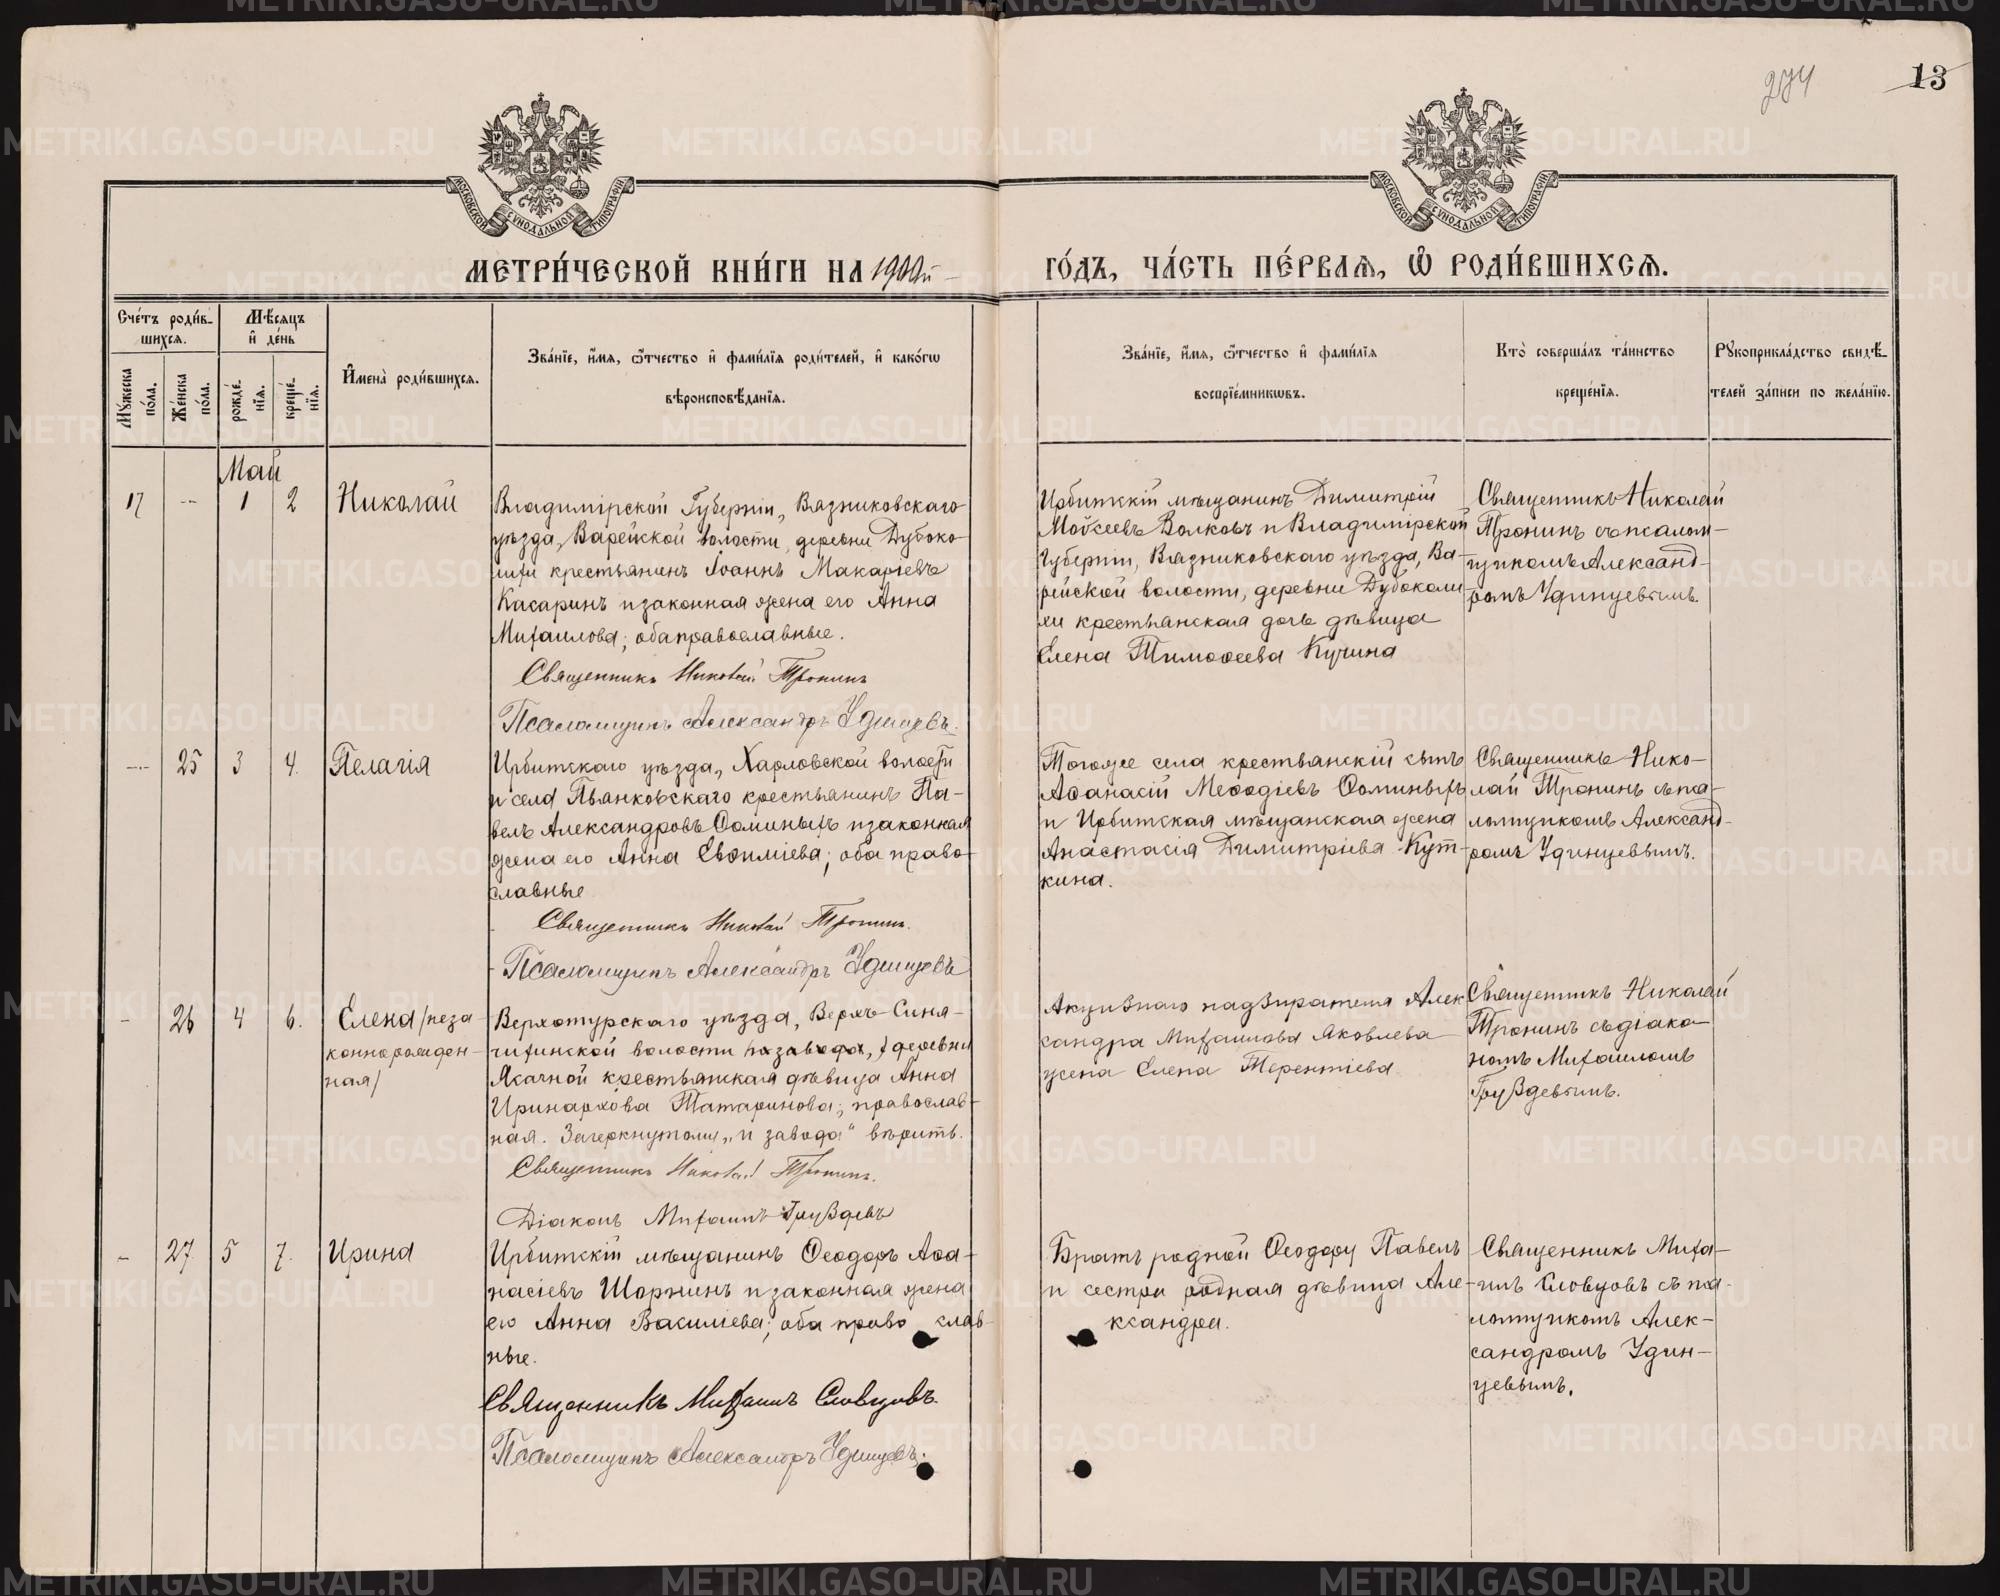 274
13
МОСКОВСКОЙ СѴНОДАЛЬНОЙ ТИПОГРАФІИ
МОСКОВСКОЙ СѴНОДАЛЬНОЙ ТИПОГРАФІИ
МЕТРИ́ЧЕСКОЙ КНИ́ГИ НА 1900й
ГО́ДЪ, ЧА́СТЬ ПЕ́РВАЯ, Ѡ҆ РОДИ́ВШИХСЯ.
Сче́тъ роди́в-
шихся.
Мѣ́сяцъ
и҆ де́нь
И҆мена̀ роди́вшихся.
Зва́нїе, и҆́мя, ѻ҆́тчество и҆ фами́лїя роди́телей, и҆ како́гѡ
вѣроисповѣ́данїя.
Зва́нїе, и҆́мя, ѻ҆́тчество и҆ фами́лїя
воспрїе́мникѡвъ.
Кто̀ соверша́лъ та́инство
креще́нїя.
Рꙋкоприкла́дство свидѣ́-
телей за́писи по жела́нїю.
Мꙋ́жеска
по́ла.
Же́нска
по́ла.
рожде́-
нїя.
креще́-
нїя.
Май
17 -- 1 2 Николай
Владимірской Губерніи, Вязниковскаго
уѣзда, Варейской волости, деревни Дубоко-
лихи крестьянинъ Іоаннъ Макаріевъ
Касаринъ и законная жена его Анна
Михаилова; оба православные.
Священникъ Николай Тронинъ
Псаломщикъ Александръ Удинцевъ.
Ирбитскій мѣщанинъ Димитрій
Моѵсеевъ Волковъ и Владимірской
Губерніи, Вязниковскаго уѣзда, Ва-
рейской волости, деревни Дубоколи
хи крестьянская дочь дѣвица
Елена Тимоѳеева Кучина
Священникъ Николай
Тронинъ съ псалом-
щикомъ Александ-
ромъ Удинцевымъ.
-- 25 3 4. Пелагія
Ирбитскаго уѣзда, Харловской волости
и села Пьянковскаго крестьянинъ Па-
велъ Александровъ Ѳоминыхъ и законная
жена его Анна Евѳиміева; оба право-
славные
Священникъ Николай Тронинъ.
Псаломщикъ Александръ Удинцевъ
Тогоже села крестьянскій сынъ
Аѳанасій Меѳодіевъ Ѳоминыхъ
и Ирбитская мѣщанская жена
Анастасія Димитріева Кут-
кина.
Священникъ Нико-
лай Тронинъ съ пса-
ломщикомъ Александ-
ромъ Удинцевымъ.
- 26 4 6. Елена /неза
коннорожден-
ная/
Верхотурскаго уѣзда, Верхъ-Синя-
чихинской волости и завода, деревни
Ясачной крестьянская дѣвица Анна
Иринархова Татаринова; православ-
ная. Зачеркнутому „и завода" вѣрить.
Священникъ Николай Тронинъ.
Діаконъ Михаилъ Груздевъ
Акцизнаго надзирателя Алек
сандра Михаилова Яковлева
жена Елена Терентіева
Священникъ Николай
Тронинъ съ діако-
номъ Михаиломъ
Груздевымъ.
- 27 5 7. Ирина
Ирбитскій мѣщанинъ Ѳеодоръ Аѳа-
насіевъ Шорнинъ и законная жена
его Анна Василіева; оба право слав-
ные.
Священникъ Михаилъ Словцовъ
Псаломщикъ Александръ Удинцевъ.
Братъ родной Ѳеодору Павелъ
и сестра родная дѣвица Але-
ксандра.
Священникъ Миха-
илъ Словцовъ съ пса-
ломщикомъ Алек-
сандромъ Удин-
цевымъ.
METRIKI.GASO-URAL.RU